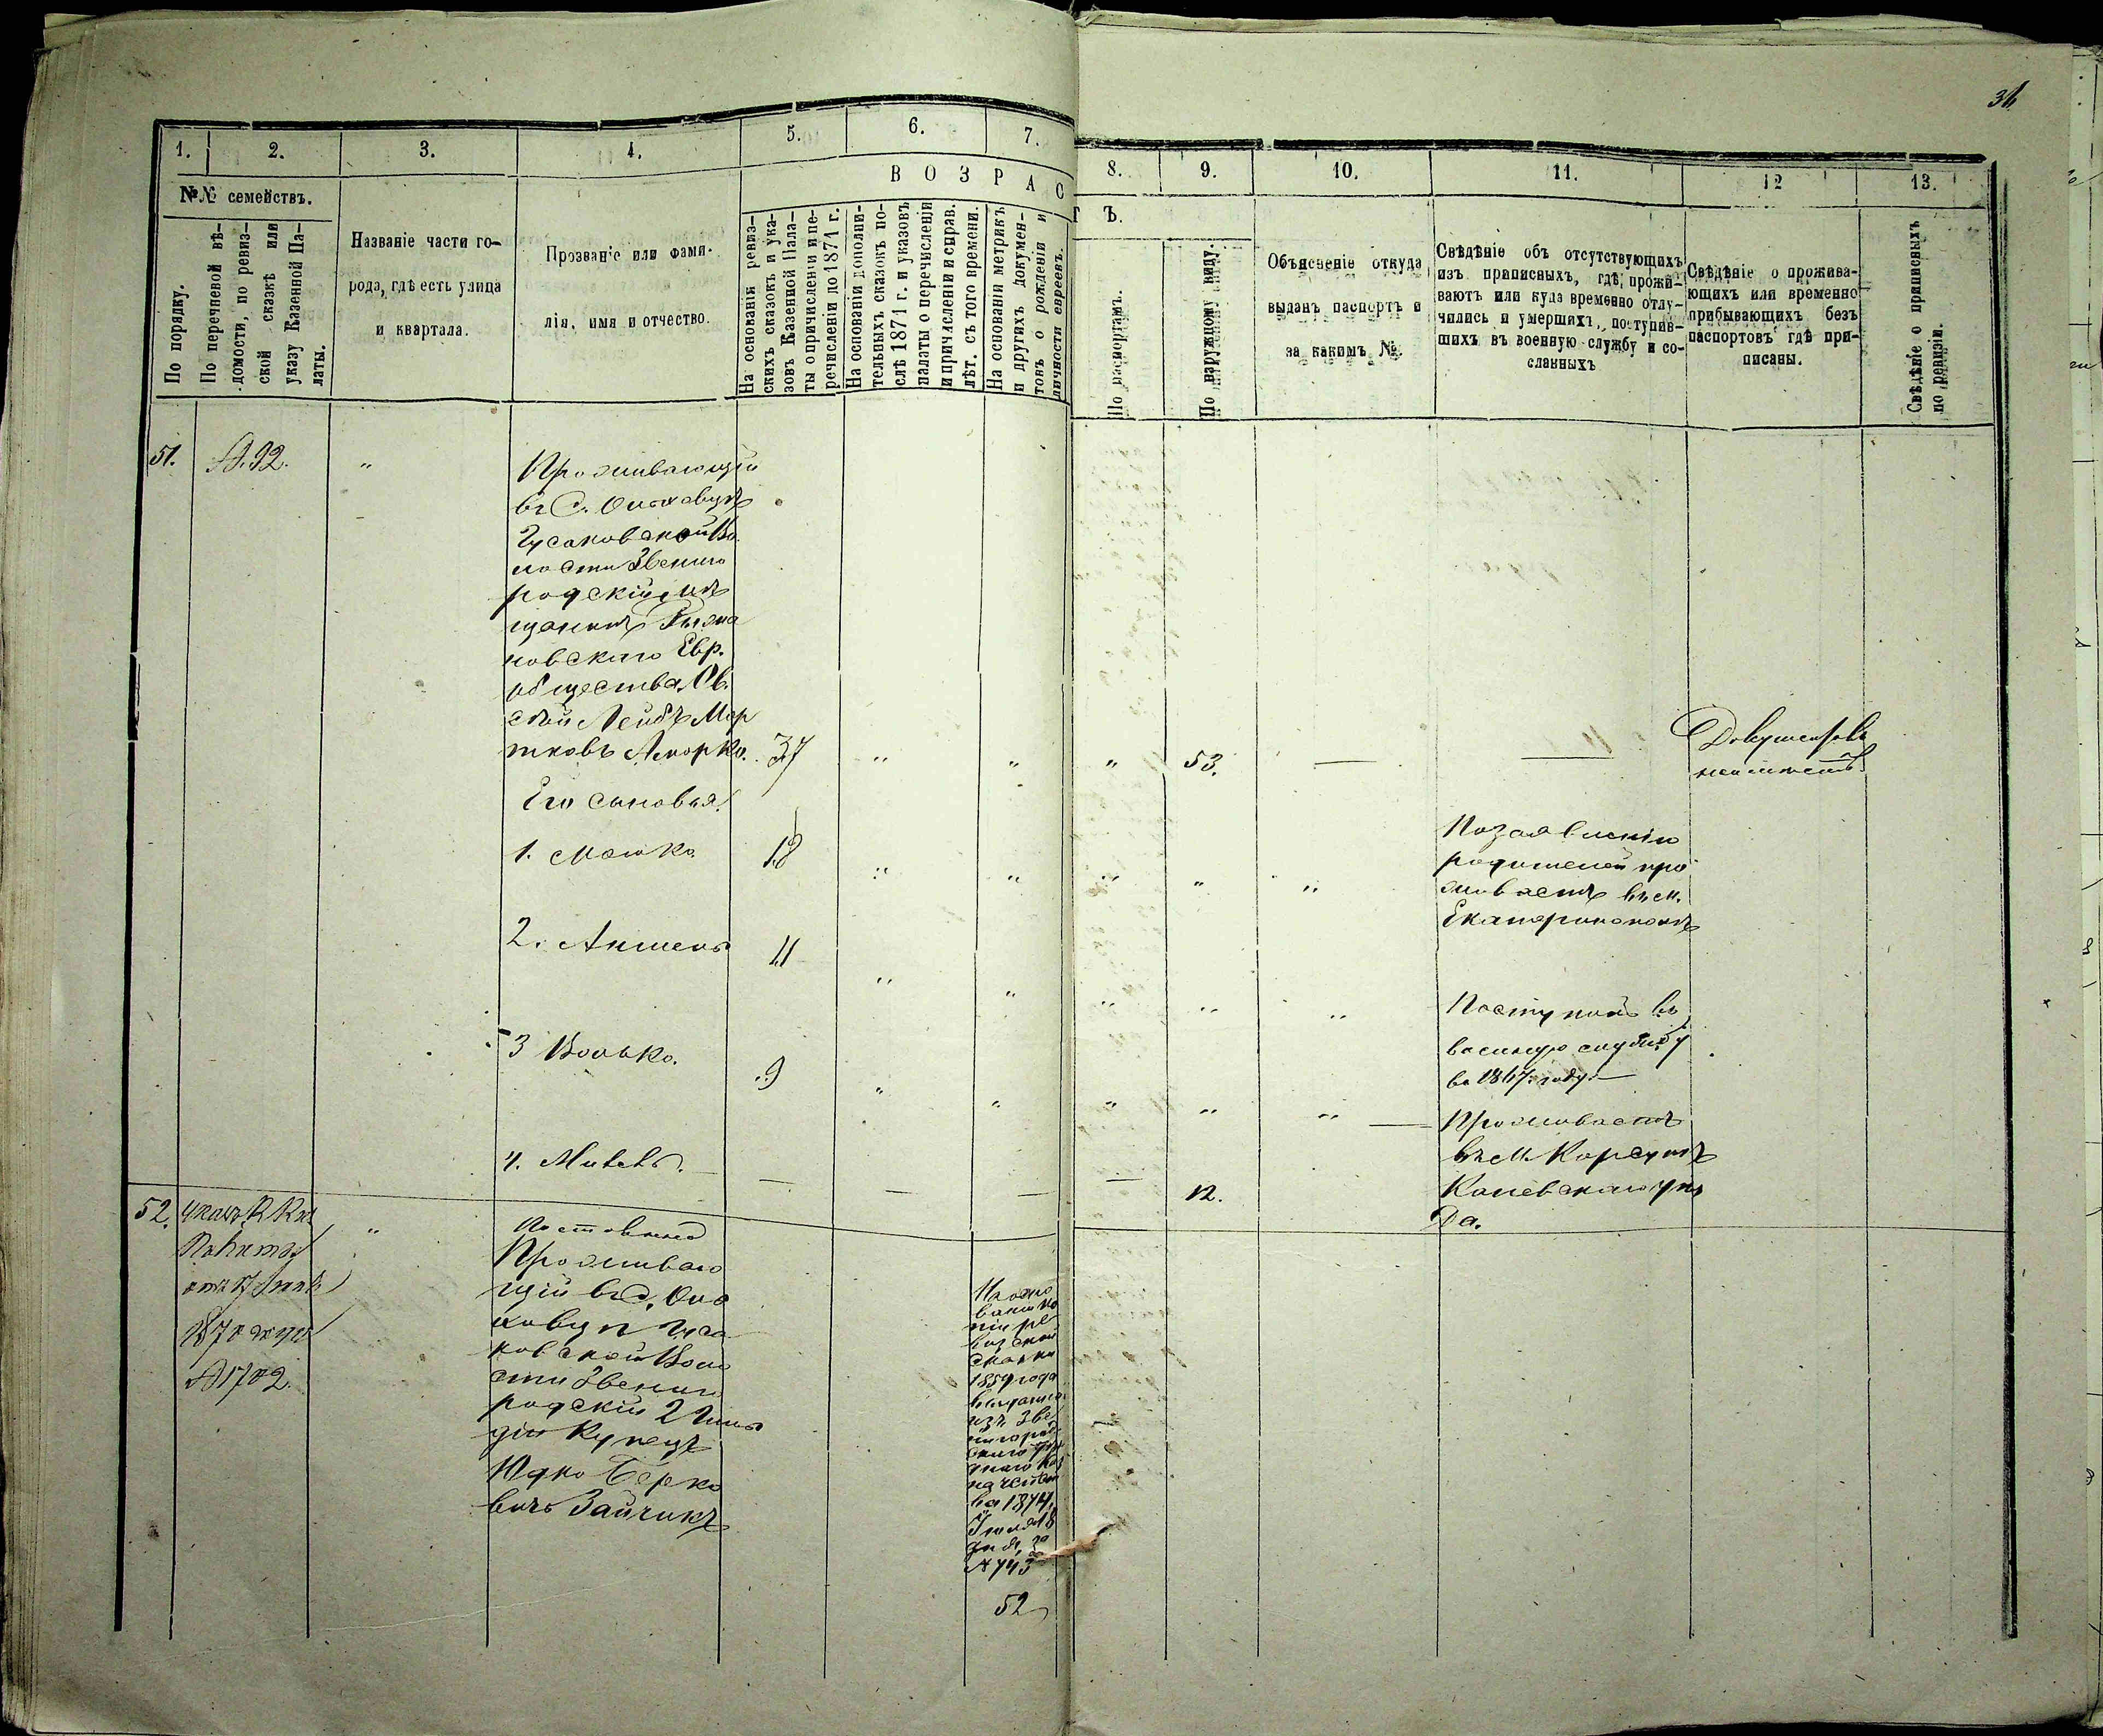 36
1. 2. 3. 4. 5. 6. 7. 8. 9. 10. 11. 12 13.
№№ семействъ.
В О З Р А С Т Ъ.
По порядку.
По перечневой вѣ-
домости, по ревиз-
ской сказкѣ или
указу Казенной Па-
латы.
Названіе части го-
рода, гдѣ есть улица
и квартала.
Прозваніе или фами-
лія, имя и отчество.
На основаніи ревиз-
скихъ сказокъ и ука-
зовъ Казенной Пала-
ты о причисленіи и пе-
речисленіи до 1871 г.
На основаніи дополни-
тельныхъ сказокъ по-
слѣ 1871 г. и указовъ
палаты о перечисленіи
и причисленіи и справ.
лѣт. съ того времени.
На основаніи метрикъ
и другихъ докумен-
товъ о рожденіи и
личности евреевъ.
По паспортамъ.
По наружному виду.
Объясненіе откуда
выданъ паспортъ и
за какимъ №.
Свѣдѣніе объ отсутствующихъ
изъ приписныхъ, гдѣ прожи-
ваютъ или куда временно отлу-
чились и умершихъ, поступив-
шихъ въ военную службу и со-
сланныхъ
Свѣдѣніе о прожива-
ющихъ или временно
прибывающихъ безъ
паспортовъ гдѣ при-
писаны.
Свѣдѣніе о приписныхъ
по ревизіи.
51. № 92. "
Проживающій
въ С.
Гусаковской Во
лости Звениго
родскій мѣ
щанинъ
новскаго Евр.
общества
Лейбъ Мор
тковъ 37 " " " 53. — — Документовъ
неимеетъ
Его сыновья
1. Мошко 18 " " " " " По заявленію
родителей про
живаетъ въ м.
Екатеринополѣ
2. Аншель 11 " " " " " Поступилъ въ
военную службу
въ 1867 году.
3 Волько. 9 " " " " " — Проживаетъ
въ м. Корсунѣ
Каневскаго уѣз
да.
4. — — — — 12.
52. указъ К К
Палаты
отъ 17
187
№ 1702. "
Проживаю
щій въ С. Оль
ховцѣ Гуса
ковской Воло
сти Звениго
родскій 2 Гиль
діи Купецъ
Юдко Берко
вичъ Зайчикъ
На осно
ваніи ко
піи ре
визской
сказки
1859 года
выданной
изъ Зве
нигород
скаго уѣз
днаго Каз
начейст
ва 1874
Іюля 18
дня за
№ 743
52